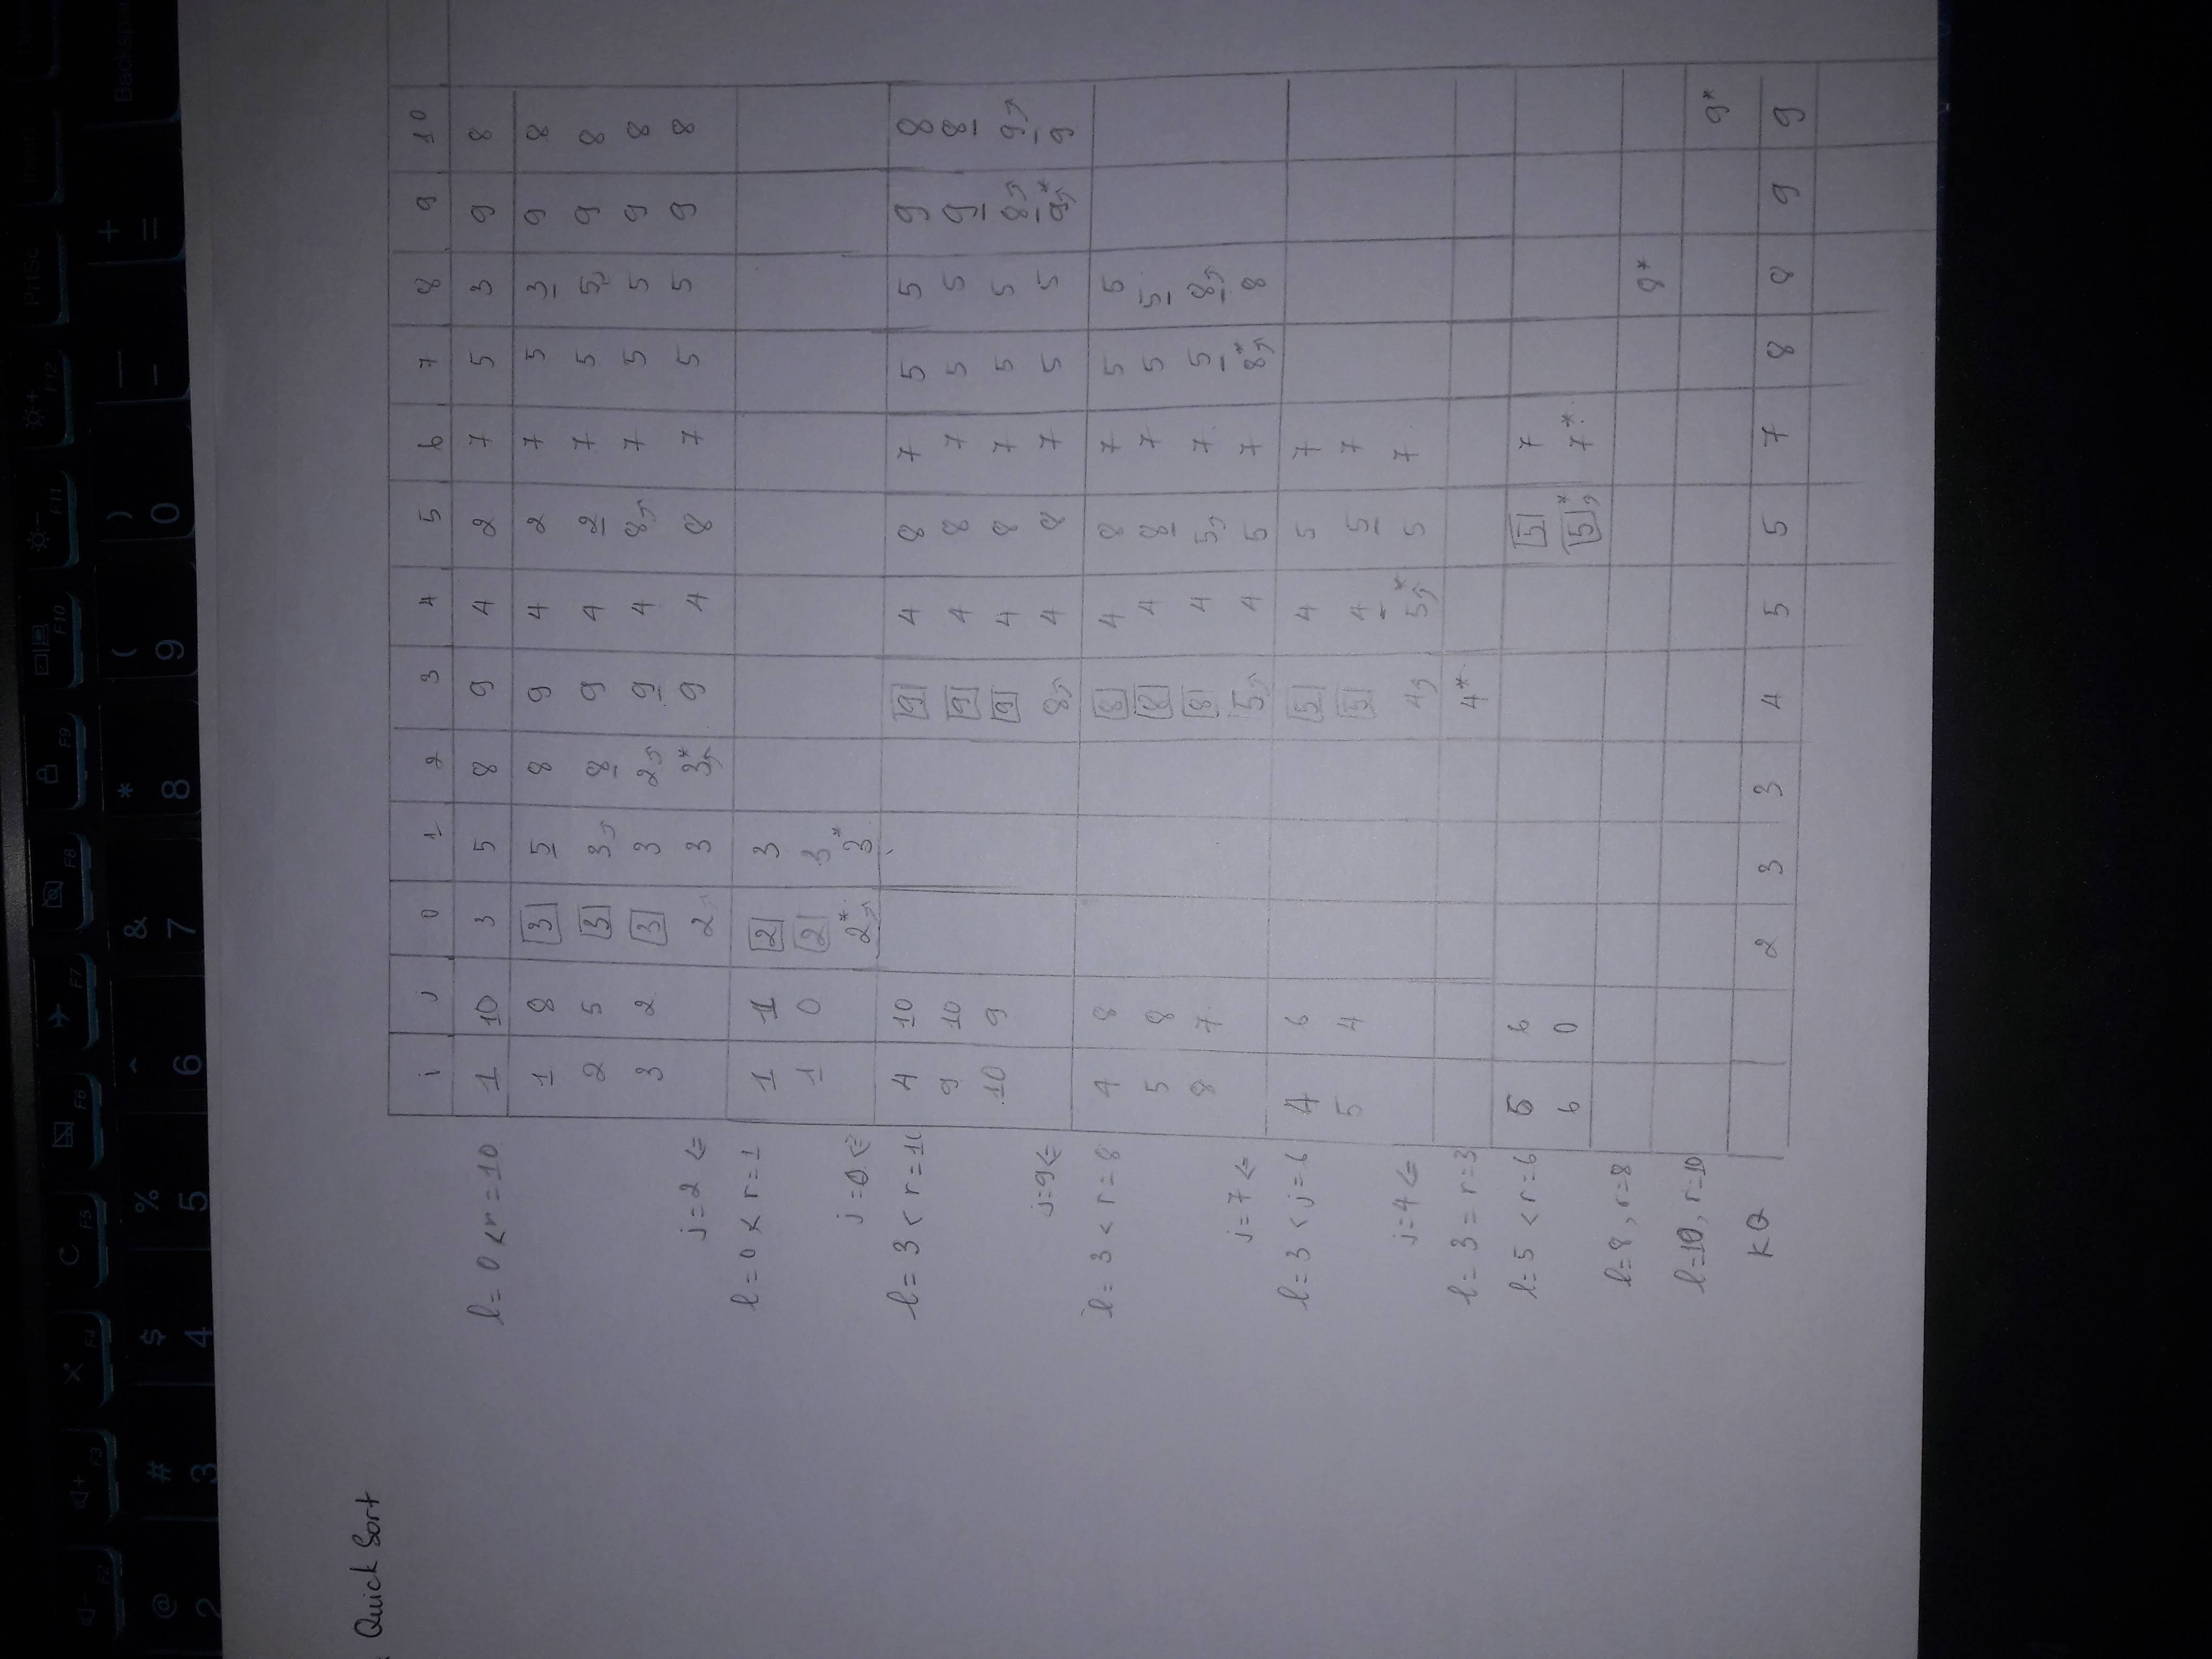 F2 F3 F4 F5 F6 F7 F8 F9 F10 F11 F12 PrtSc Insert
@ # $ % ^ & * ( ) — +
2 3 4 5 6 7 8 9 0 - = Backspa
Quick Sort
i j 0 1 2 3 4 5 6 7 8 9 10
l = 0 < r = 10 1 10 3 5 8 9 4 2 7 5 3 9 8
1 8 3 5 8 9 4 2 7 5 3 9 8
2 5 3 3 8 9 4 2 7 5 5 9 8
3 2 3 3 2 9 4 8 7 5 5 9 8
j = 2 <= 2 3 3* 9 4 8 7 5 5 9 8
l = 0 < r = 1 1 1 2 3
1 0 2 3
j = 0 <= 2* 3*
l = 3 < r = 10 4 10 9 4 8 7 5 5 9 8
9 10 9 4 8 7 5 5 9 8
10 9 9 4 8 7 5 5 8 9
j = 9 <= 8 4 8 7 5 5 9* 9
l = 3 < r = 8 4 8 8 4 8 7 5 5
5 8 8 4 8 7 5 5
8 7 8 4 5 7 5 8
j = 7 <= 5 4 5 7 8* 8
l = 3 < j = 6 4 6 5 4 5 7
5 4 5 4 5 7
j = 4 <= 4 5* 5 7
l = 3 = r = 3 4*
l = 5 < r = 6 6 6 5 7
6 0 5* 7*
l = 8, r = 8 8*
l = 10, r = 10 9*
KQ 2 3 3 4 5 5 7 8 8 9 9